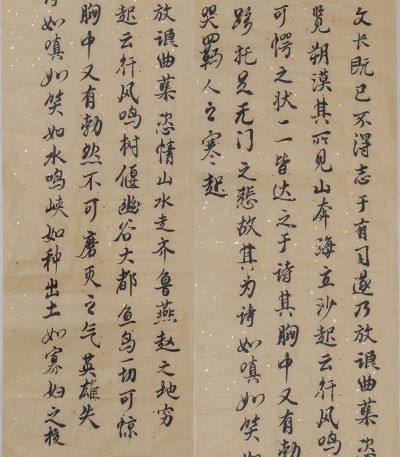 文长既已不得志于有司遂乃放浪曲蘖恣
览朔漠其所见山奔海立沙起云行风鸣
可愕之状一一皆达之于诗其胸中又有勃
路托足无门之悲故其为诗如嗔如笑如
哭羁人之寒起
放浪曲蘖恣情山水走齐鲁燕赵之地穷
起云行风鸣树偃幽谷大都鱼鸟一切可惊
胸中又有勃然不可磨灭之气英雄失
如嗔如笑如水鸣峡如种出土如寡妇之夜